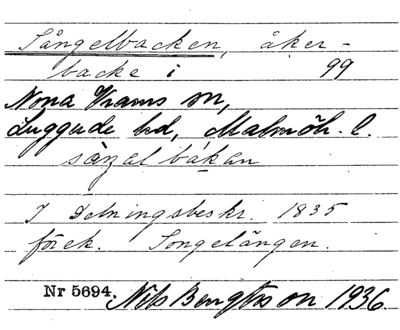 Sångelbacken, åker-
backe i 99
Norra Vrams sn,
Luggude hd, Malmöh. l.
sàŋalbákan
I Delningsbeskr. 1835
förek. Songelängen.
Nr 5694. Nils Bengtsson 1936.